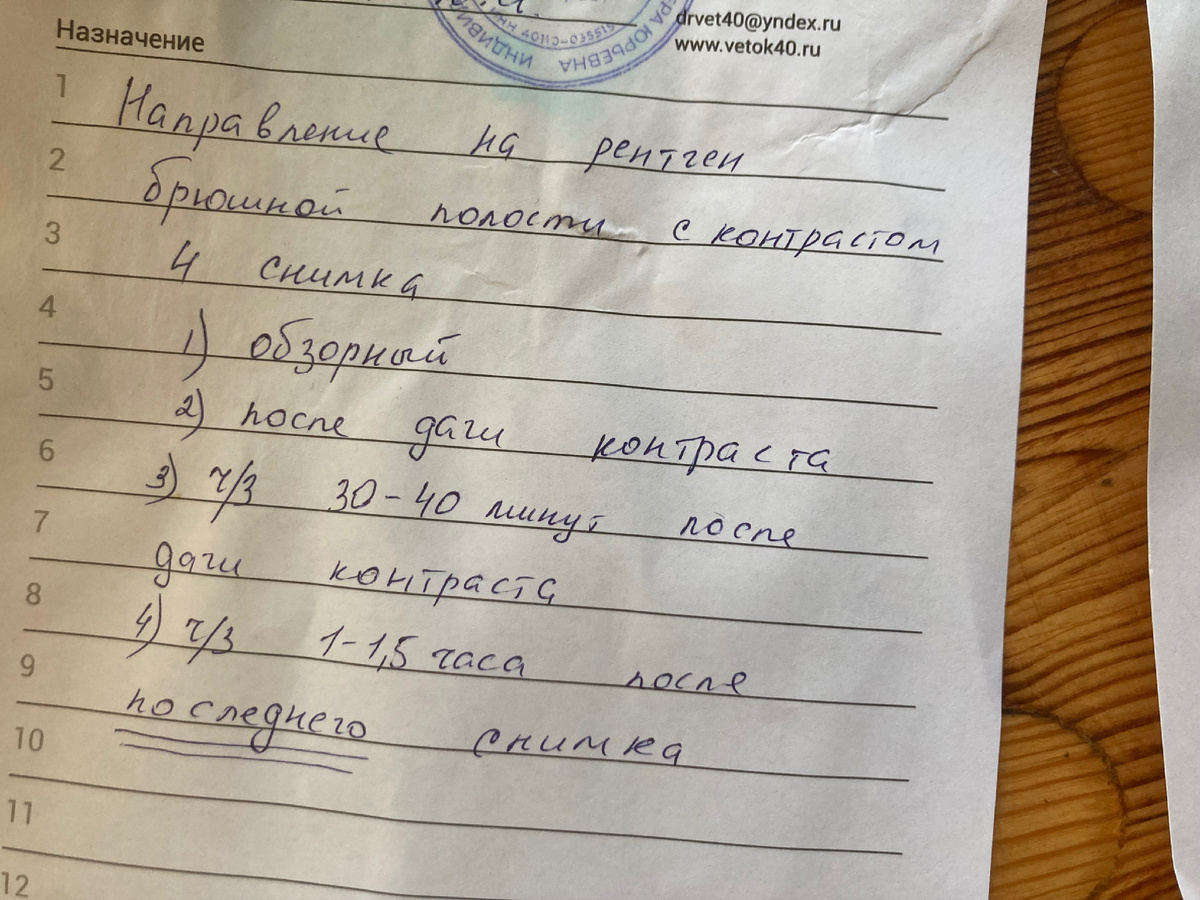 drvet40@yndex.ru
www.vetok40.ru
ИНДИВИ
РА ЮРЬЕВНА
Назначение
1 Направление на рентген
2 брюшной полости с контрастом
3 4 снимка
4 1) обзорный
5 2) после дачи контраста
6 3) ч/з 30-40 минут после
7 дачи контраста
8 4) ч/з 1-1,5 часа после
9 последнего снимка
10
11
12